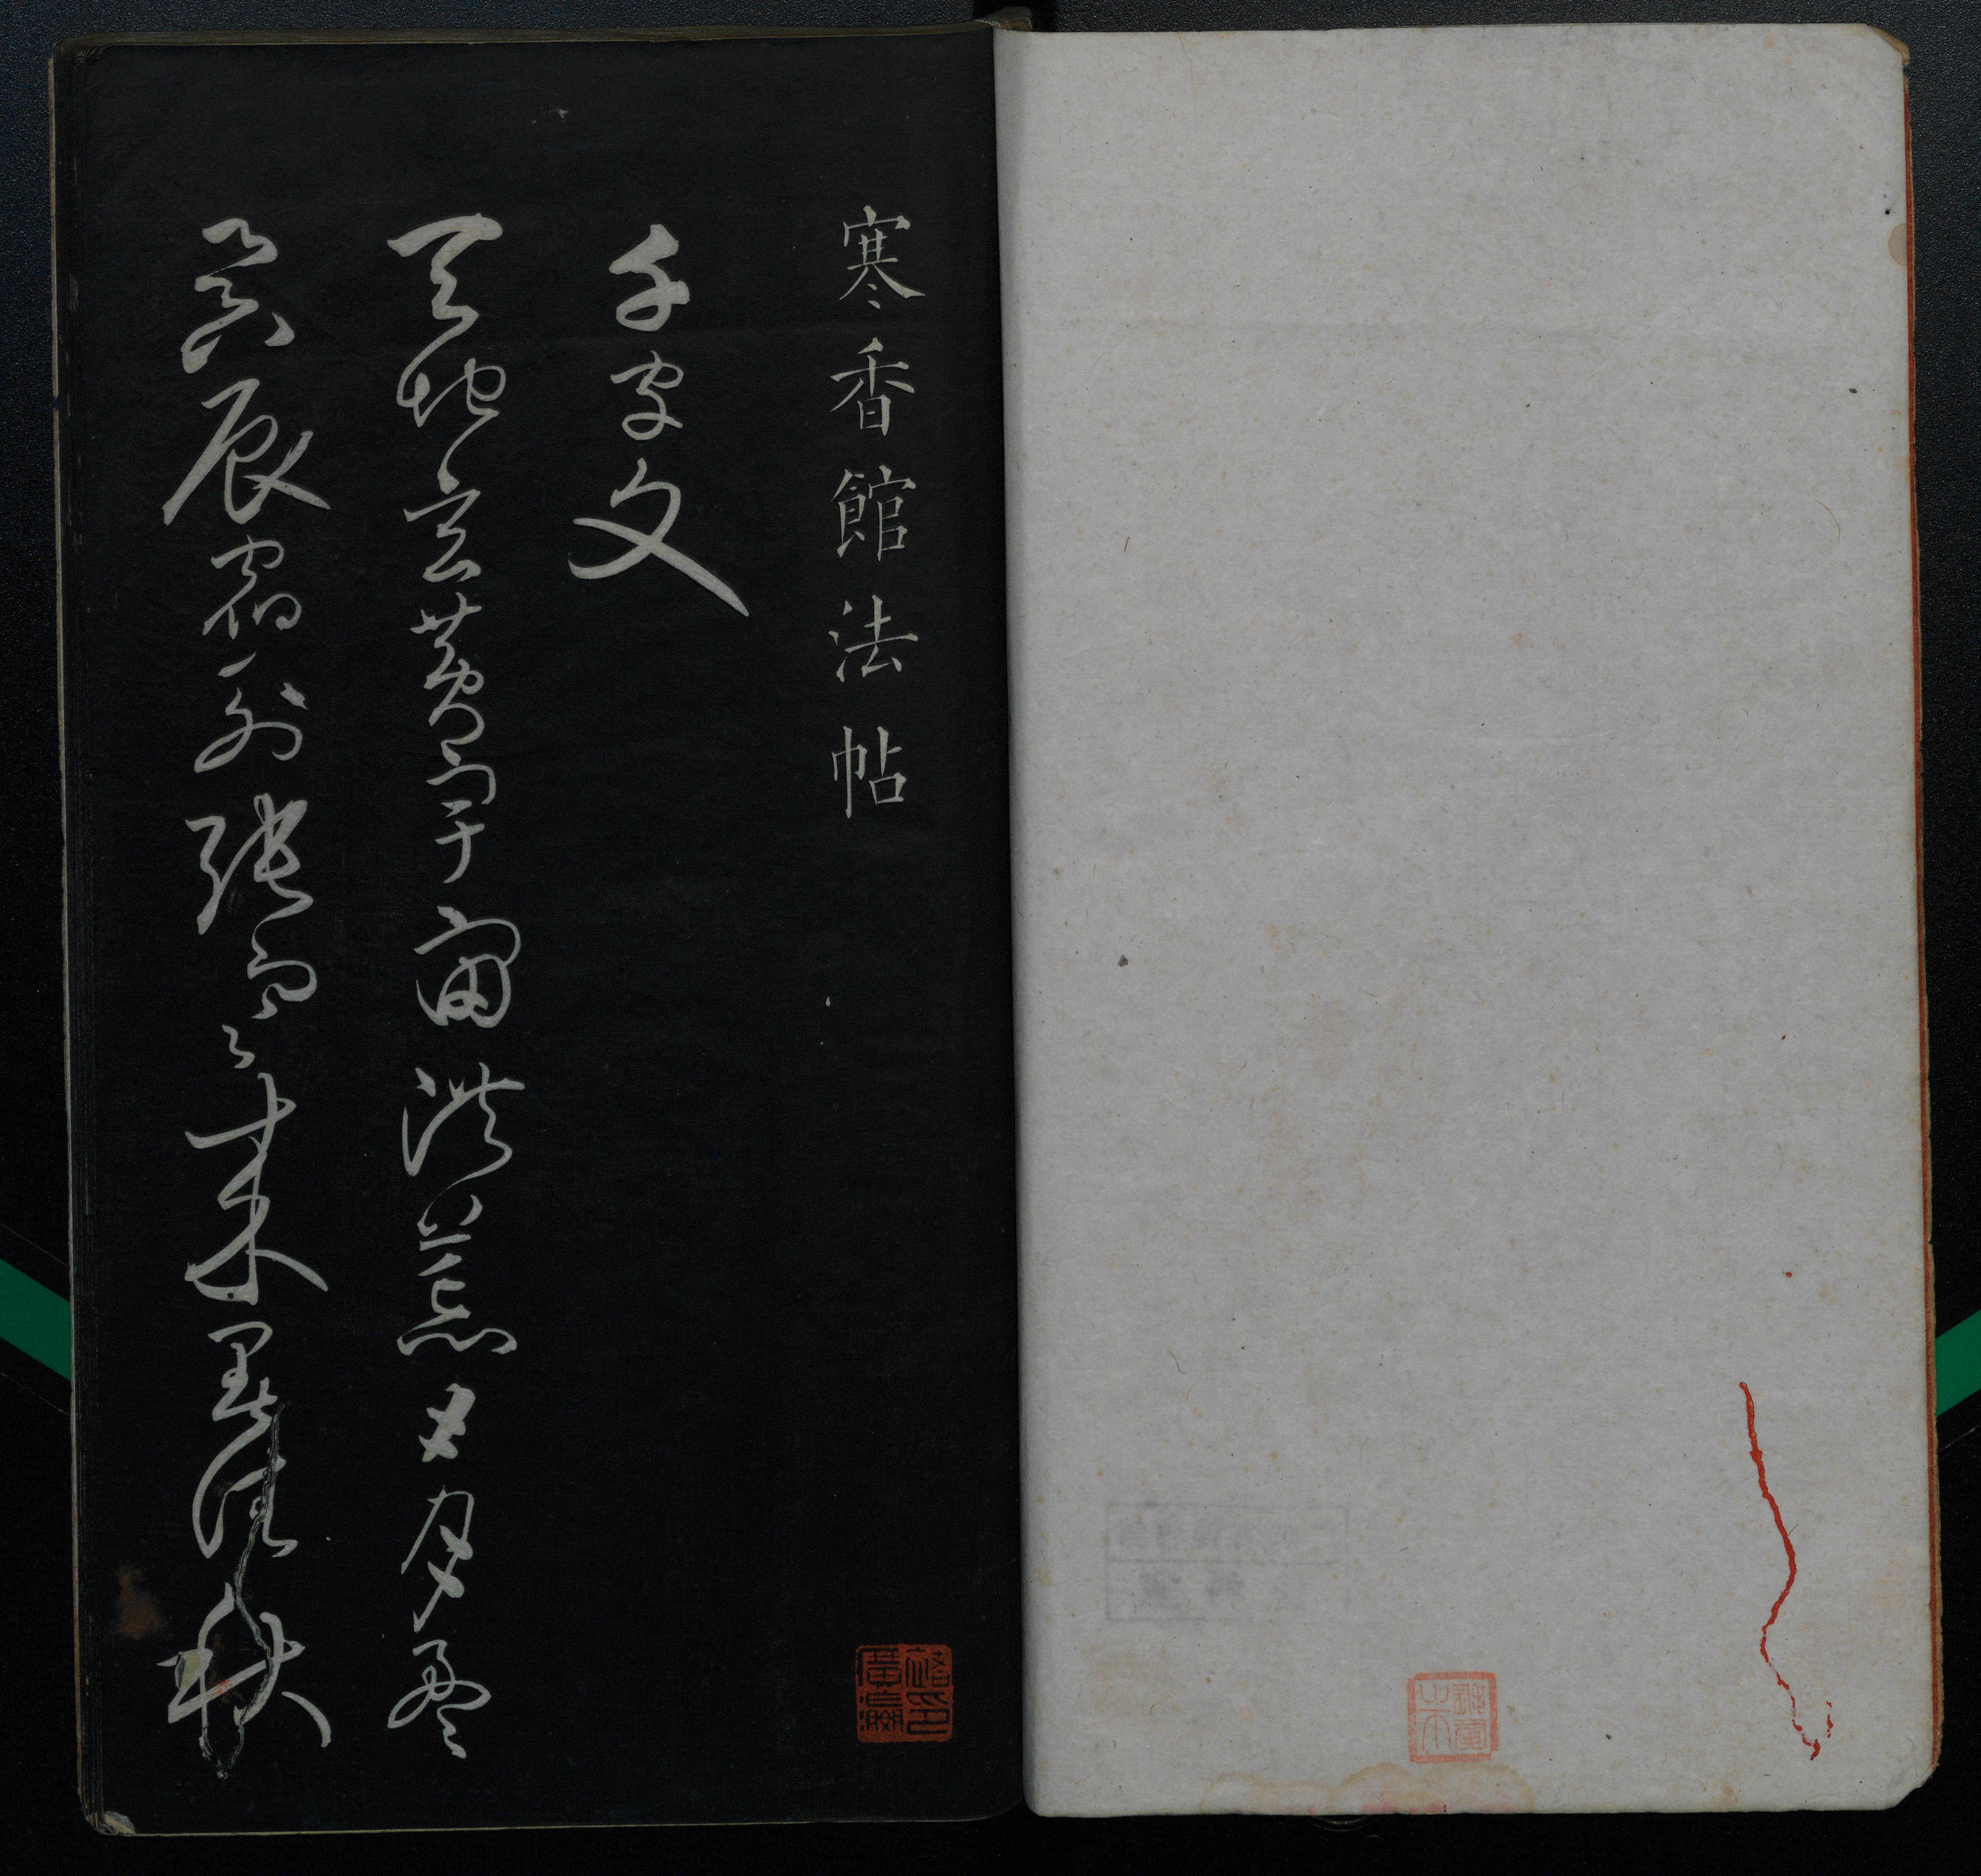 寒香館法帖
千字文
天地玄黃宇宙洪荒日月盈
昃辰宿列張寒來暑往秋